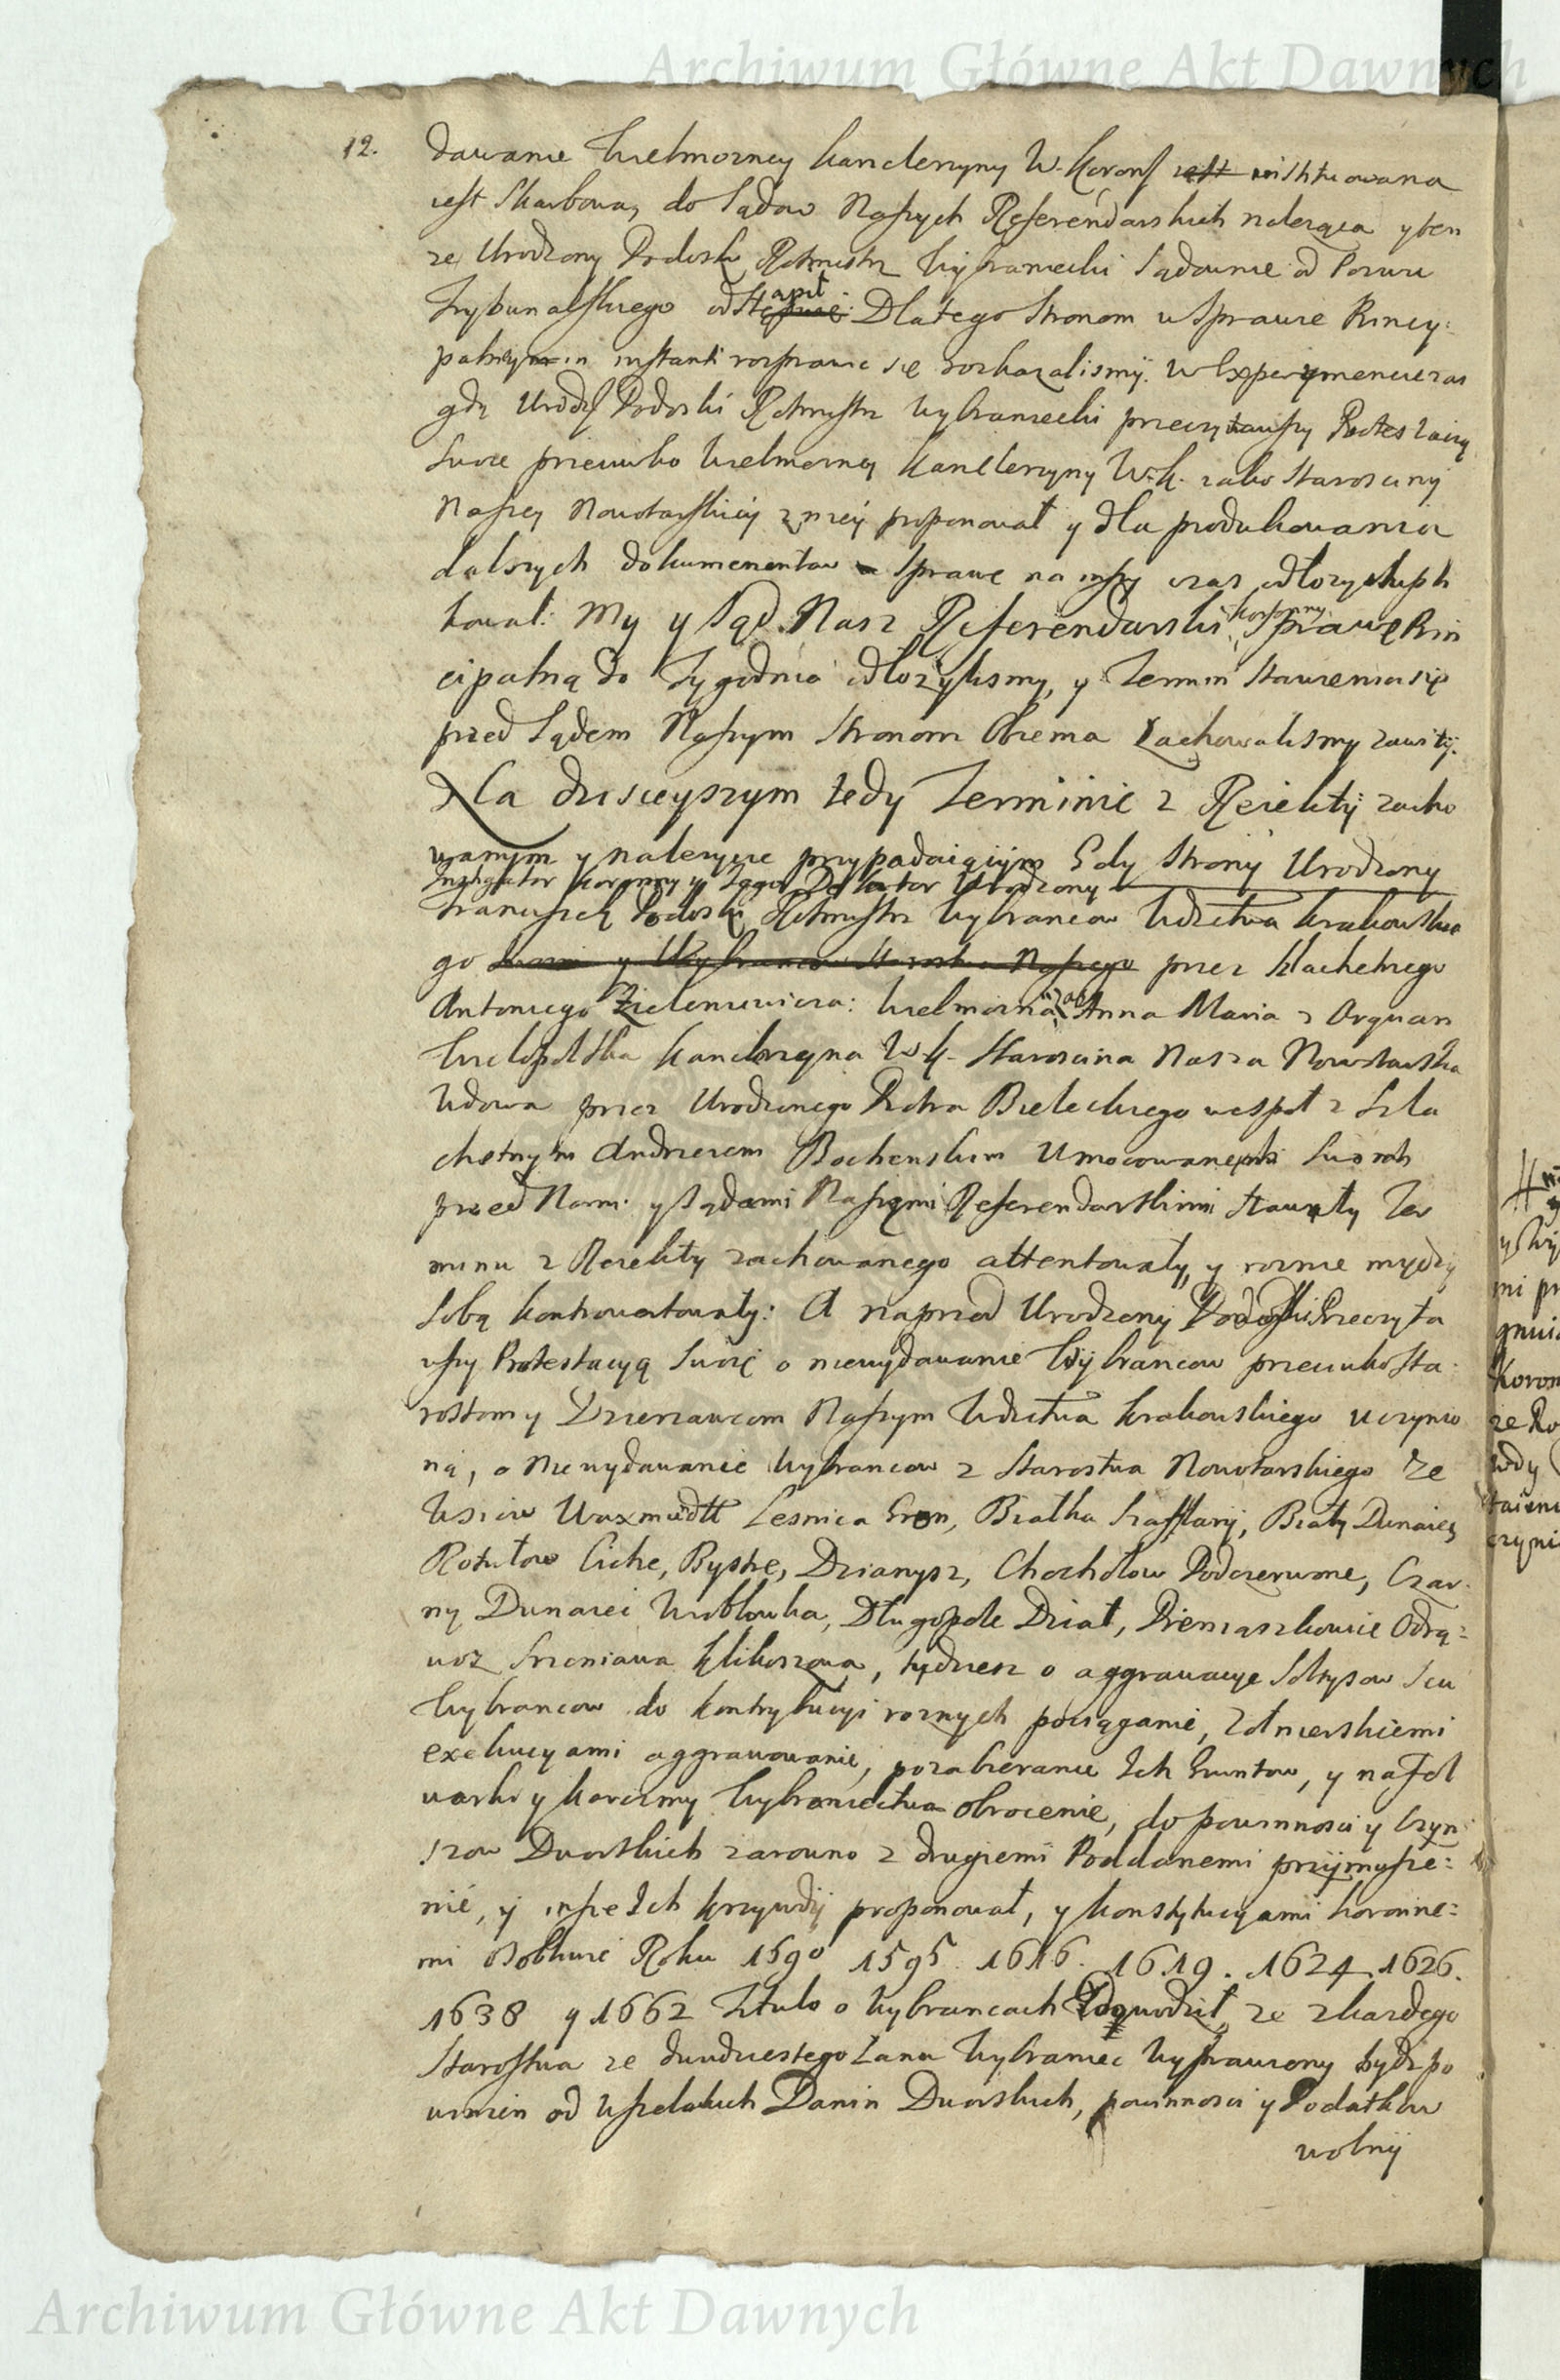 Archiwum Główne Akt Dawnych
12.
dawanie Wielmozney Kanclerzyny W. Koron jest wistituowana
iest Skarbowa, do Sądow Naszych Referendarskich nalerąca yten
ze Urodzony Podoski Rotmistrz Wybraniecki Sądownie od Pozwu
Trybunalskiego odstąpił Dlatego Stronom wSprawie Princy:
palney in instanti rosprawic się roskazalismy. W Experymencie zas
gdy Urodz Podoski Rotmistrz Wybraniecki przeczytawszy Protestacyą
Swoie przeciwko Wielmozney Kanclerzyny W.K. iako Starosciny
Naszey Nowotarskiey z niey proponował y dla produkowania
dalszych dokumentow Sprawę na inszy czas odłozyc
kował: My y Sąd Nasz Referendarski koronny Sprawę Prin
cipalną do Tygodnia odłozylismy, y Termin Stawienia się
przed Sądem Naszym Stronom Obiema Zachowalismy zawity.
Na dzisieyszym tedy Terminie z Reiekty zacho
wanym y nalezycie przypadaiącym Gdy Strony Urodzony
Instygator Koronny y Iego Delator Urodzony
Franciszek Podoski Rotmistrz Wybrancow Wdztwa Krakowskie
go przez Szlachetnego
Antoniego Zieleniewicza: Wielmozna zas Anna Maria z Arquan
Wielopolska Kanclerzyna W K. Staroscina Nasza Nowotarska
Wdowa przez Urodzonego Piotra Bieleckiego wespoł z Szla
chetnym Andrzeiem Bochenskim Umocowanemi Swoich
przed Nami y Sądami Naszymi Referendarskiemi stawały Ter
minu z Reiekty zachowanego attentowały, y roznie między
Sobą kontrowertowały: A naprzod Urodzony Podoski Przeczyta
wszy Protestacyą Swoię o niewydawanie Wybrancow przeciwko Sta:
rostom y Dzierzawcom Naszym Wdztwa Krakowskiego uczynio
ną, o Niewydawanie Wybrancow z Starostwa Nowotarskiego ze
Wsiow Waxmudtt Lesnica Gron, Białka Szafflary, Biały Dunaiec
Rotułow Ciche, Bystre, Dzianysz, Chochołow Podczerwone, Czar
ny Dunaiec Wroblowka, Długopole Dział, Pieniąszkowice Odrą:
woz Srzeniawa Klikoszowa, tydziesz o aggrawacye Sołtysow Seu
Wybrancow do kontrybucyi roznych pociąganie, Zołnierskiemi
exekucyami aggrawowanie, pozabieranie Ich Gruntow, y na Fol
warki y karczmy Wybraniectwa obrocenie, do powinnosci y Czyn
szow Dworskich zarowno z drugiemi Poddanemi przymusze:
nie, y insze Ich krzywdy proponował, y Konstytucyami koronne:
mi osobliwie Roku 1590 1595. 1616. 1619. 1624. 1626.
1638 y 1662 Titulo o Wybrancach Dowodził, ze zkazdego
Starostwa ze dwudziestego Łanu Wybraniec Wyprawiony bydz po
winien od wszelakich Danin Dworskich, powinnosci y Podatkow
wolny
Archiwum Główne Akt Dawnych